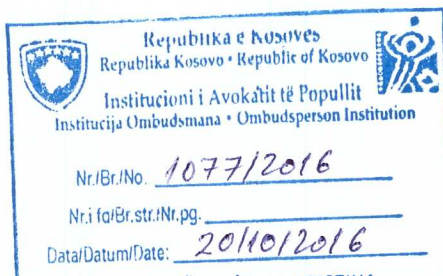 Republika e Kosovës
Republika Kosovo • Republic of Kosovo
Institucioni i Avokatit të Popullit
Institucija Ombudsmana • Ombudsperson Institution
Nr./Br./No. 1077/2016
Nr.i fq/Br.str./Nr.pg.
Data/Datum/Date: 20/10/2016